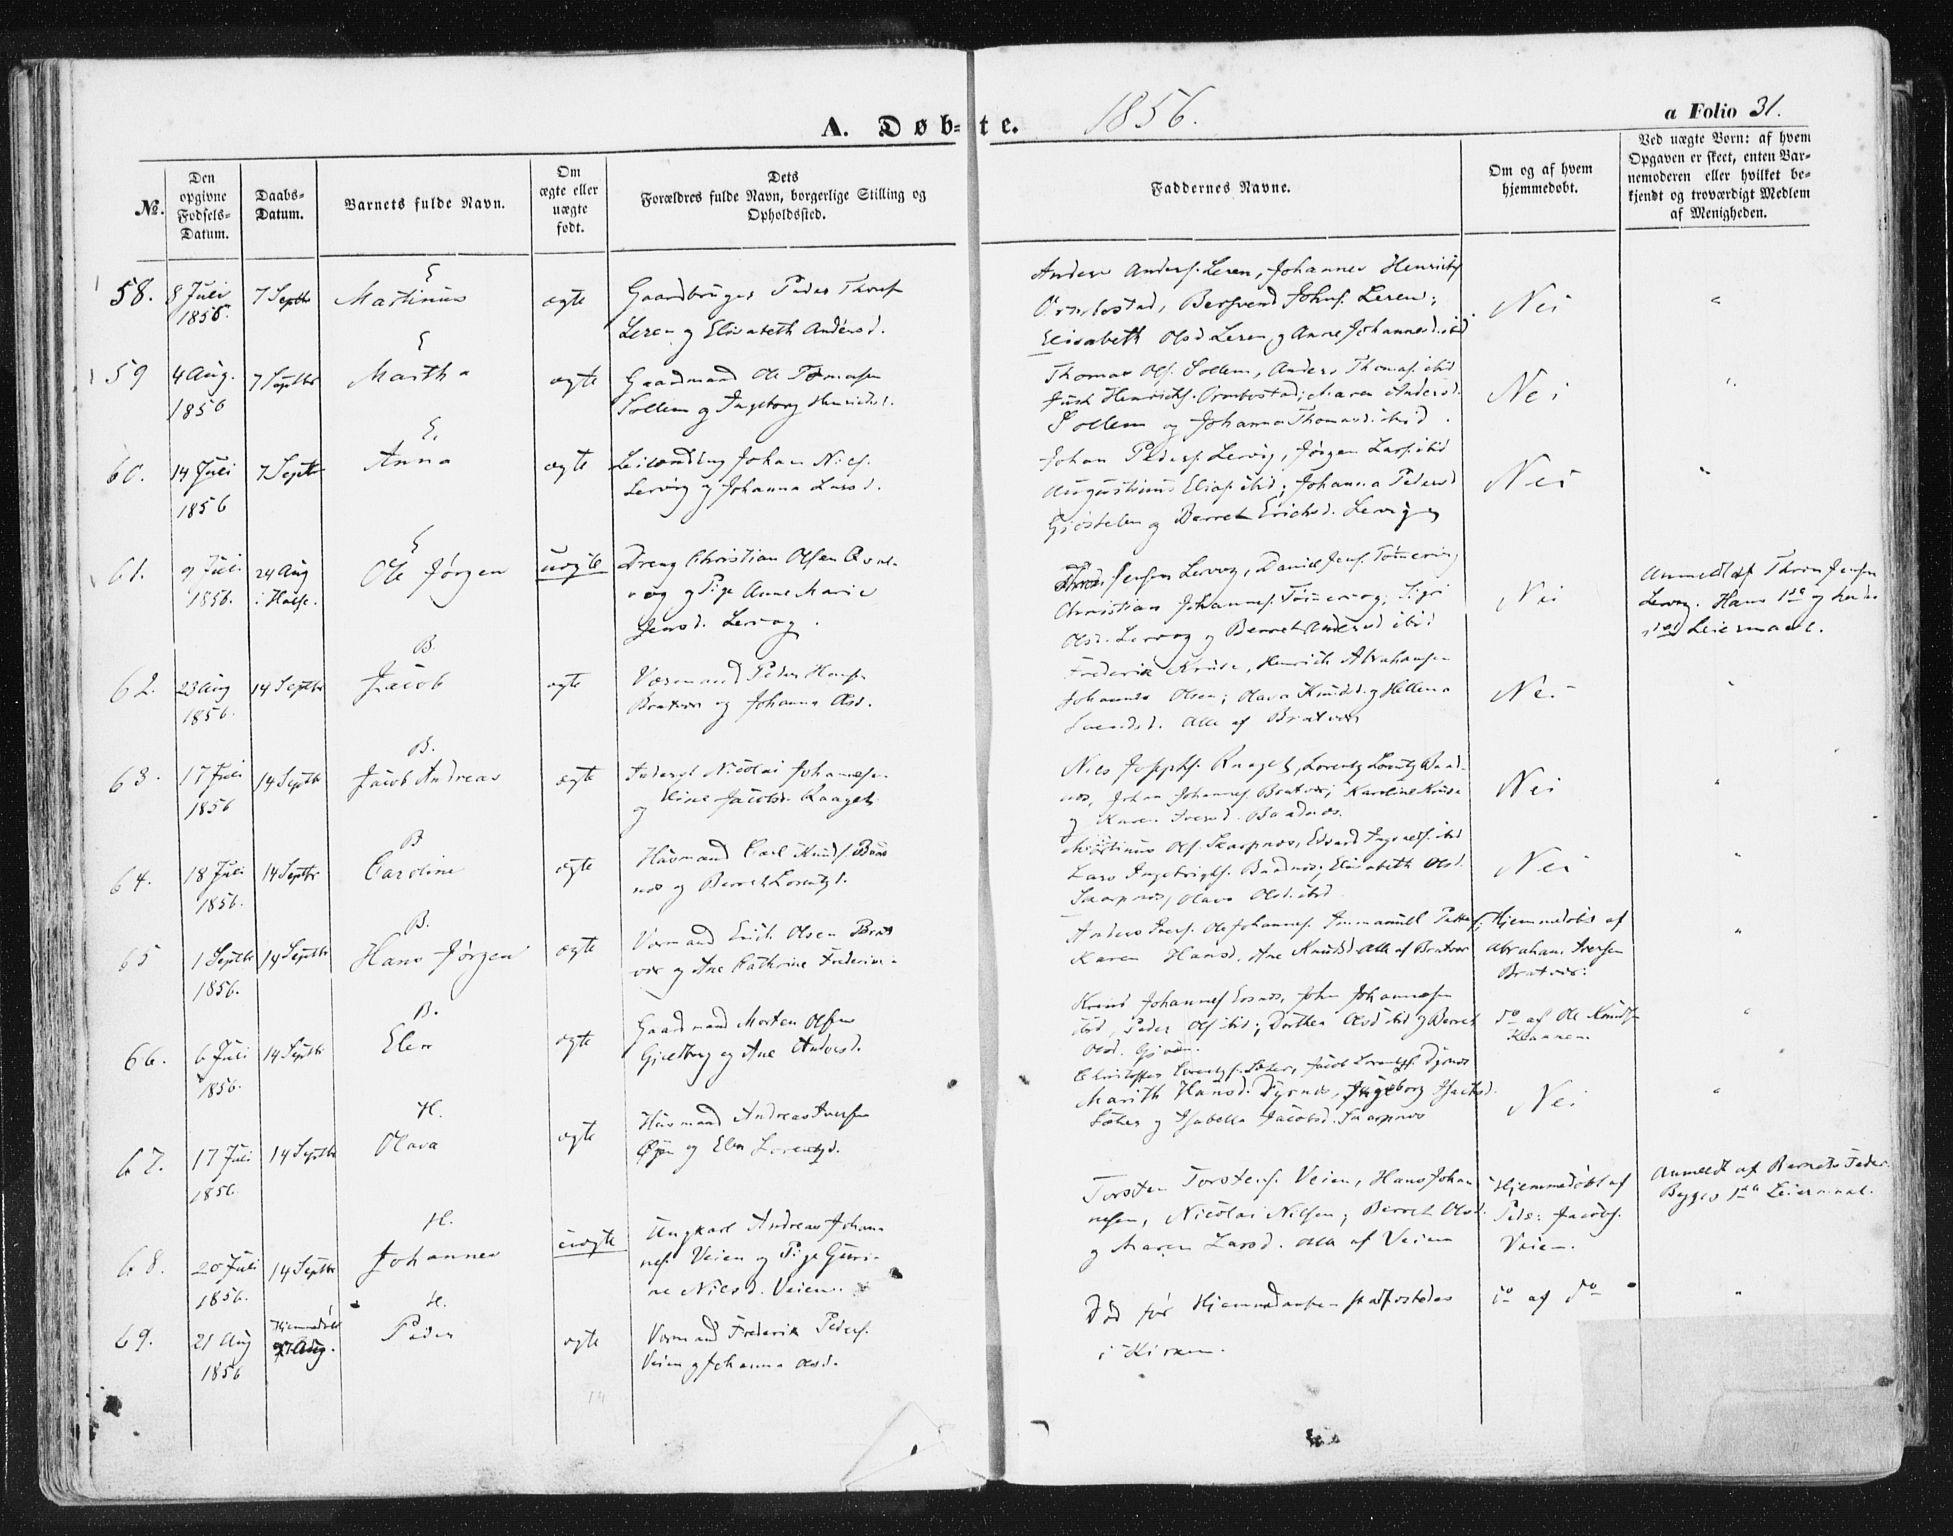 A. Døb=te. 1856. a Folio 31.
№.
Den opgivne Fødsels-Datum.
Daabs-Datum.
Barnets fulde Navn.
Om ægte eller uægte født.
Dets Forældres fulde Navn, borgerlige Stilling og Opholdssted.
Faddernes Navne.
Om og af hvem hjemmedøbt.
Ved uægte Børn: af hvem Opgaven er skeet, enten Barnemoderen eller hvilket bekjendt og troværdigt Medlem af Menigheden.
58. 8 Juli 1856. 7 Septbr
E
Martinus
ægte
Gaardbruger Peder
Leren og Elisabeth Andersd.
Anders Anders. Leren, Johannes Henriks.
Ørnbostad, Johns. Leren;
Elisabeth Olsd Leren og Anne Johannesd. ibid
Nei
"
59 4 Aug. 1856 7 Septbr
E
Martha
ægte
Gaardmand Ole Tomasen
Sollem og Ingeborg Henriksd.
Thomas Ols. Sollem, Anders Thomas. ibid
Henriks. Ornbostad; Maren Andersd.
Sollem og Johanna Thomasd. ibid.
Nei
"
60. 14 Juli 1856 7 Septbr
E.
Anna
ægte
Leilending Johan Niels.
Lervig og Johanna Larsd.
Johan Peders. Lervig, Jørgen Lars. ibid
Augustinus Elias. ibid; Johanna Pedersd
og Berret Erichsd. Lervig
Nei
"
61. 9 Juli 1856. 24 Aug i Halse.
E
Ole Jørgen
uægte
Dreng Christian Olsen
vog og Pige Anne Marie
Jensd. Lervog.
Jensen Lervog, Daniel Jens. Tømmervog
Christian Johannes. Tømmervog; Sigri
Olsd. Lervog og Berret Andersd ibid
Nei
Anmeldt af Jensen
Lervog. Hans 1ste og hendes
Leiermaal.
62. 23 Aug 1856. 14 Septbr
B.
Jacob
ægte
Værmand Peder Hans.
Bratvær og Johanna Olsd.
Frederik Kruse, Henrich Abrahamsen
Johannes Olsen; Olava Knudsd. og Hellena
Svendsd. Alle af Bratvær
Nei
"
63. 17 Juli 1856 14 Septbr
B.
Jacob Andreas
ægte
Nicolai Johannesen
og Jacobsd. Raaget
Nils Josephs. Raaget, Lorentz Lorentz. Baadnæs,
Johan Johannes. Bratvær; Karoline Kruse
og Karen Iversd. Baadnæs.
Nei
"
64. 18 Juli 1856. 14 Septbr
B
Caroline
ægte
Husmand Carl Knuds. Baad
næs og Berret Lorentzd.
Martinus Ols. Skarpnæs, Edvard ibid
Lars Ingebrigts. Baadnæs; Elisabeth Olsd.
Skarpnæs, Olava Olsd. ibid
Nei
"
65 1 Septbr 1856. 14 Septbr
B.
Hans Jørgen
ægte
Værmand Erich Olsen Brat
vær og Ane Cathrine
Anders Ivers. Ole Johannes. Immanuel
Karen Hansd. Ane Knudsd. Alle af Bratvær
Hjemmedøbt af
Abraham Iversen
Bratvær.
"
66. 6 Juli 1856. 14 Septbr
B.
Elen
ægte
Gaardmand Morten Olsen
og Ane Andersd.
Knud Johannes. Johannesen
ibid, Peder Ols. ibid; Dorthea Olsd ibid og Berret
Olsd.
Do af Ole Knuds.
"
67. 17 Juli 1856. 14 Septbr
H.
Olava
ægte
Husmand Andreas Iversen
Øyen og Elen Lorentzd.
Christopher Lorentzs. Jacob Lorentzs. Dyrnæs
Marith Hansd. Dyrnæs, Ingeborg
og Isabella Jacobsd. Skarpnæs
Nei
"
68. 20 Juli 1856. 14 Septbr
H.
Johannes
uægte
Ungkarl Andreas Johan
nes. Veien og Pige Guri-
ne Nilsd. Veien.
Torsten Torstens. Veien, Hans Johan
nesen, Nicolai Nilsen; Berret Olsd.
og Maren Larsd. Alle af Veien
Hjemmedøbt af
Peder Jacobs.
Veien.
Anmeldt af Barnets Fader.
Begges 1ste Leiermaal.
69. 21 Aug 1856 Hjemmedøbt Aug.
H.
Peder
ægte
Værmand Frederik Peders.
Veien og Johanna Olsd.
Død før Hjemmedaaben stadfæstedes
i Kirken.
Do af Do
"
14